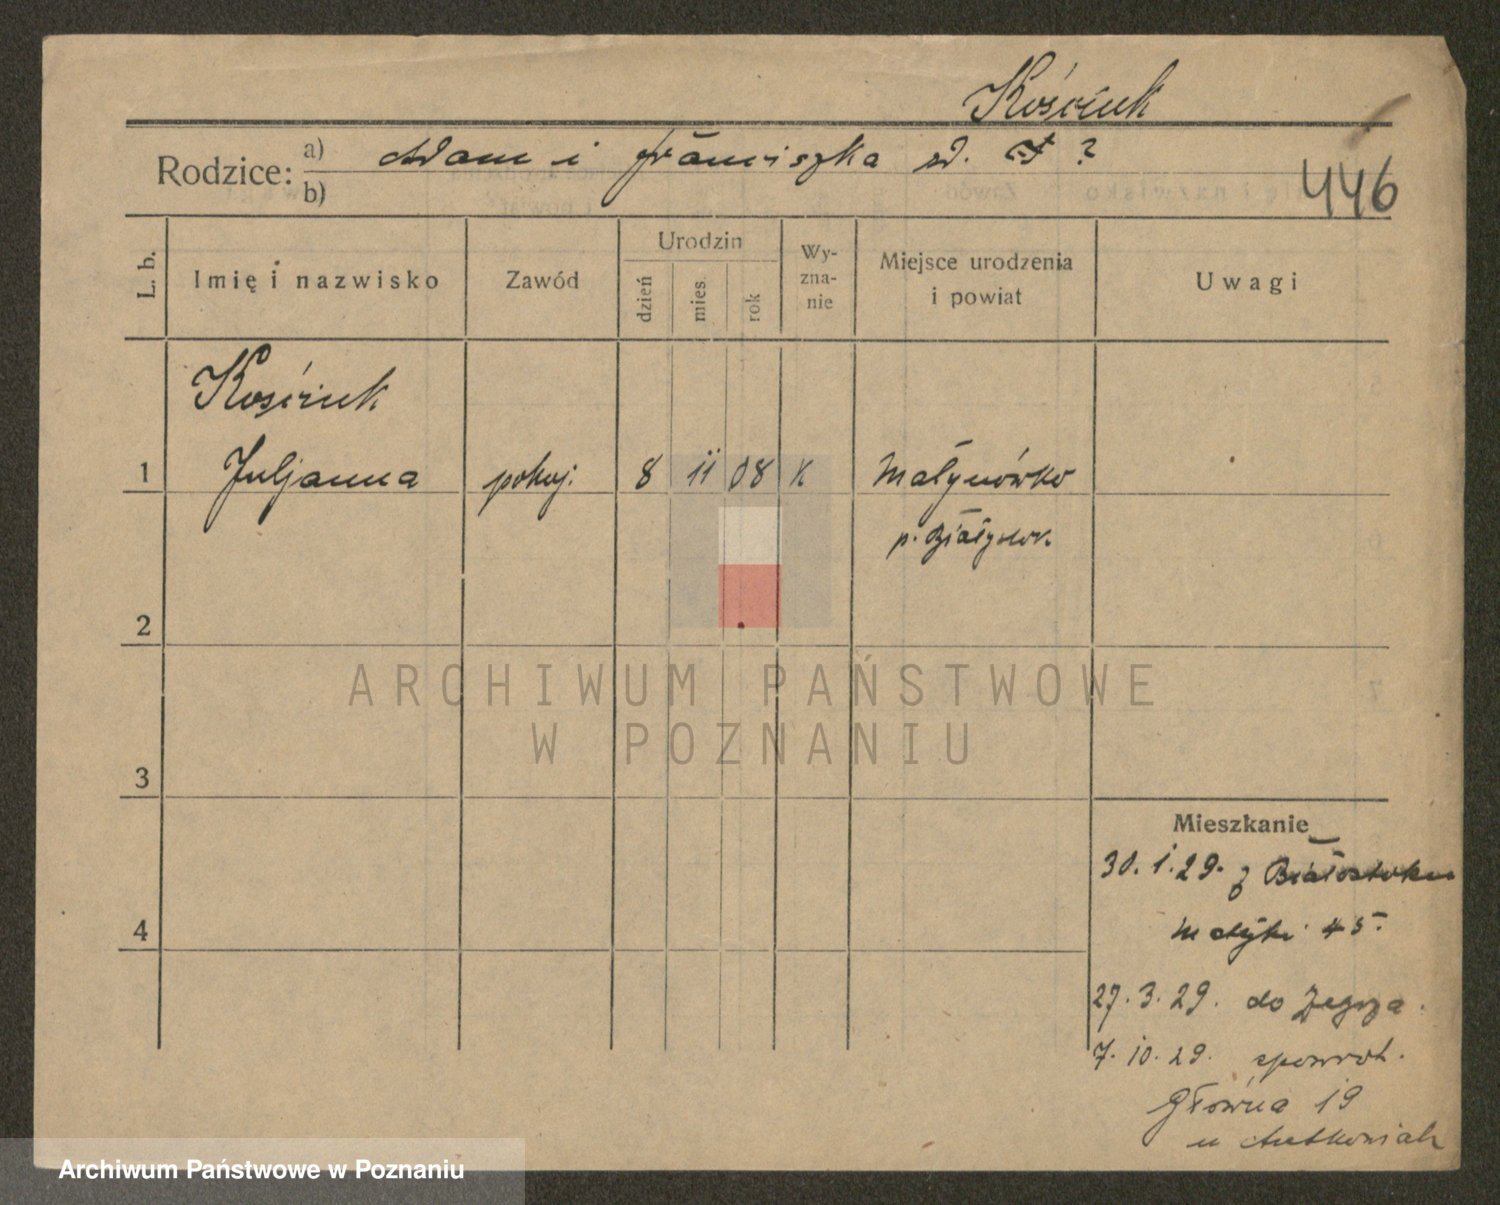 Kościuk
Rodzice: a) Adam i Franciszka zd. F ?
b)
446
L. b.
Imię i nazwisko
Zawód
Urodzin
dzień
mies.
rok
Wy-
zna-
nie
Miejsce urodzenia
i powiat
Uwagi
Kościuk
1 Juljanna pokoj. 8 11 08 K Małynówko
p. Białystok.
2
3
4
Mieszkanie
30. 1. 29. z Białostoku
Matejki 45.
27. 3. 29. do Zegrza.
7. 10. 29. spowrot.
Główna 19
u
ARCHIWUM PAŃSTWOWE
W POZNANIU
Archiwum Państwowe w Poznaniu